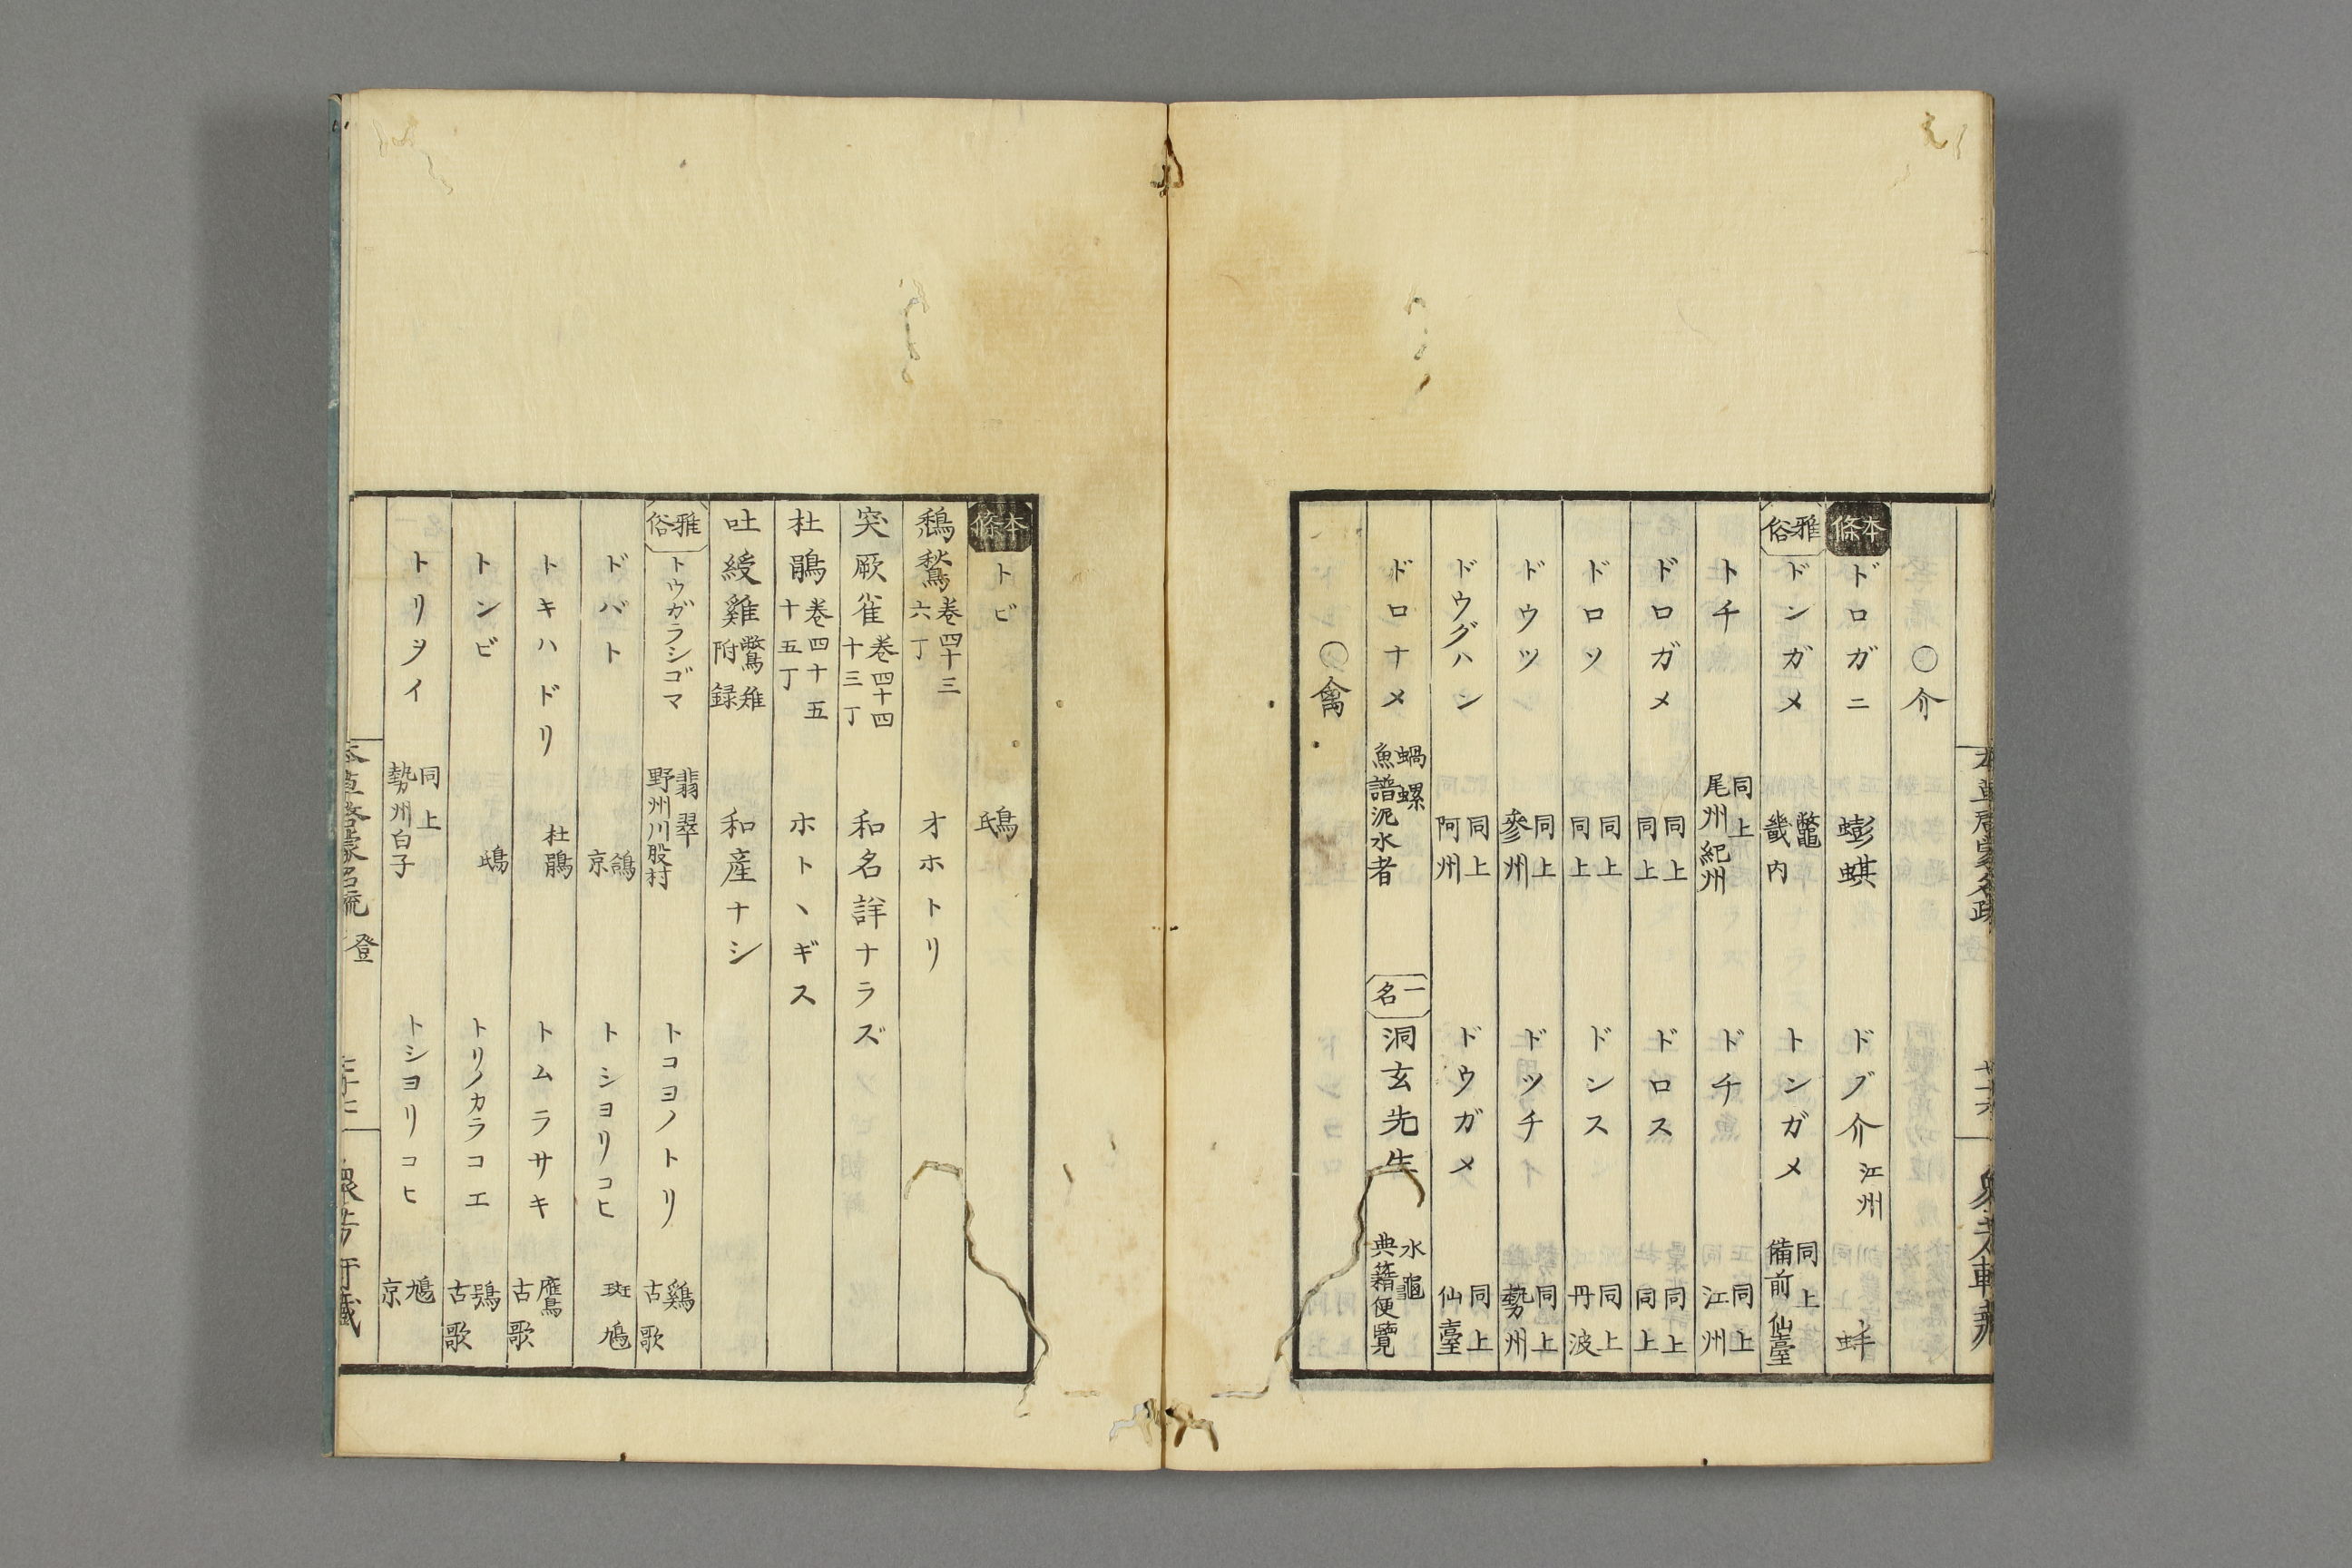 〇介
本條 ドロガニ 蟛蜞 ドブ介 江州 蚌
雅俗 ドンガメ 鼈 畿内 トンガメ 同上 備前 仙臺
トチ 同上 尾州 紀州 ドチ 同上 江州
ドロガメ 同上 同上 ドロス 同上 同上
ドロソ 同上 同上 ドンス 同上 丹波
ドウツ 同上 參州 ドツチ 同上 勢州
ドウグハン 同上 阿州 ドウガメ 同上 仙臺
ドロナメ 蝸螺 魚譜泥水者 一名 洞玄先生 水龜 典籍便覽
〇禽
本條 トビ 鴟
鵚鶖 巻四十三 六丁 オホトリ
突厥雀 巻四十四 十三丁 和名詳ナラズ
杜鵑 巻四十五 十五丁 ホトヽギス
吐綬雞 鷩雉附録 和産ナシ
雅俗 トウガラシゴマ 翡翠 野州川股村 トコヨノトリ 鷄 古歌
ドバト 鴿 京 トシヨリコヒ 斑鳩
トキハドリ 杜鵑 トムラサキ 鷹 古歌
トンビ 鴟 トリノカラコエ 鶚 古歌
トリヲイ 同上 勢州白子 トシヨリコヒ 鳩 京
本草啓蒙名疏 登